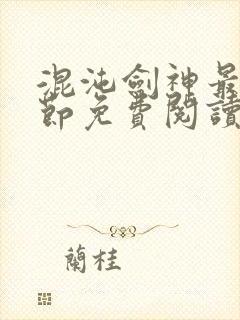 混沌劍神最
節免費閱讀
蘭桂